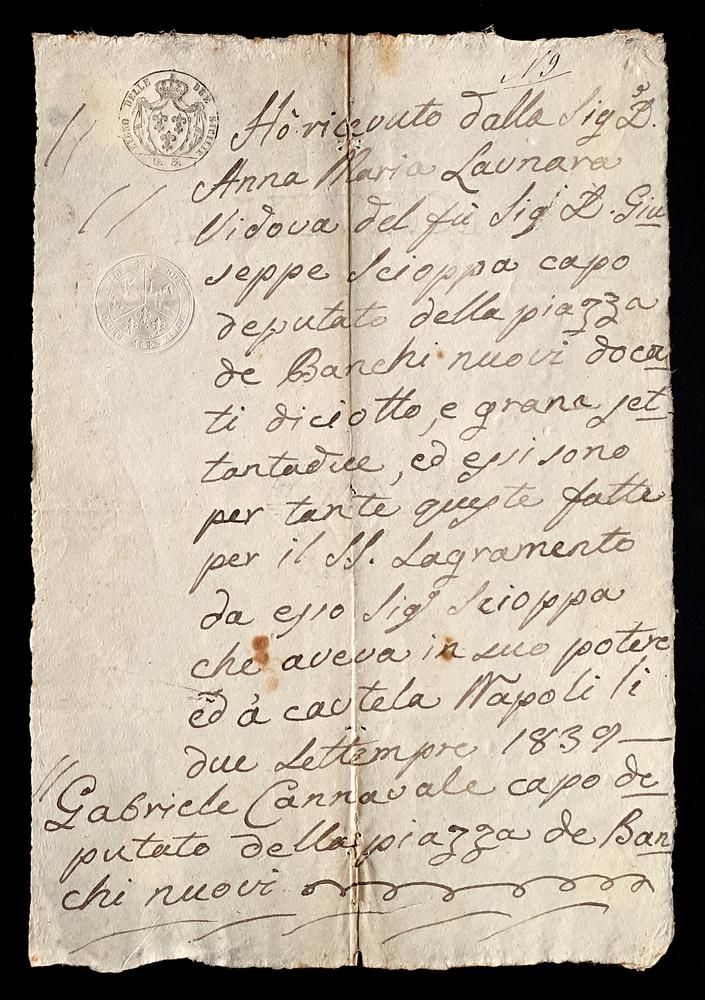 N 9
REGNO DELLE DUE SICILIE
G. 3.
Hò ricevuto dalla Sig.ª D.
Anna Maria Launara
Vidova del fù Sig.r D. Giu
seppe Scioppa capo
deputato della piazza
de Banchi nuovi doca
ti diciotto, e grana set
tantadue, ed essi sono
per tante queste fatte
per il SS. Sagramento
da esso Sig.r Scioppa
che aveva in suo potere
ed à cautela Napoli li
due Settempre 1839 —
Gabriele Cannavale capo de
putato della piazza de Ban
chi nuovi